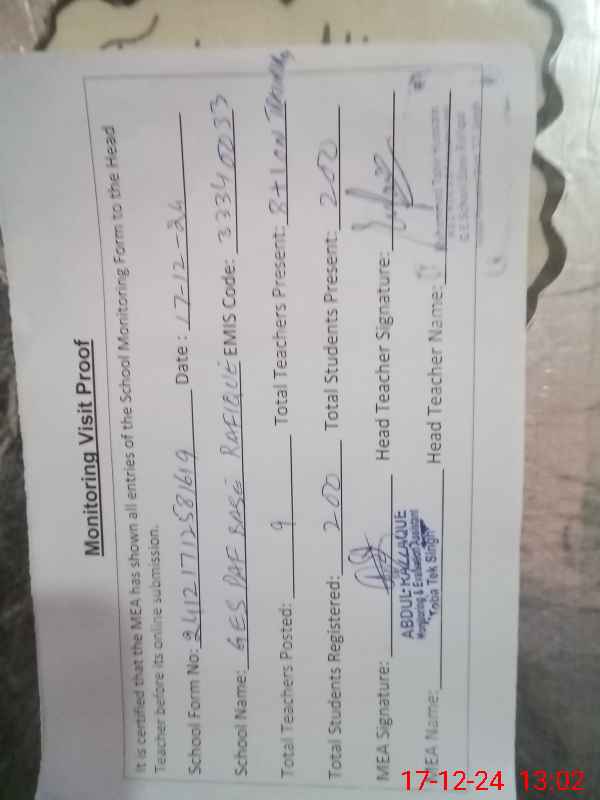 Monitoring Visit Proof
It is certified that the MEA has shown all entries of the School Monitoring Form to the Head
Teacher before its online submission.
School Form No: 24121712581619 Date : 17-12-24
School Name: GES PAF BASE RAFIQUE EMIS Code: 33340033
Total Teachers Posted: 9 Total Teachers Present: 8+1 on
Total Students Registered: 200 Total Students Present: 200
MEA Signature: Head Teacher Signature:
ABDUL RAZZAQUE
Monitoring & Evaluation Assistant
Toba Tek Singh
MEA Name: Head Teacher Name:
17-12-24 13:02